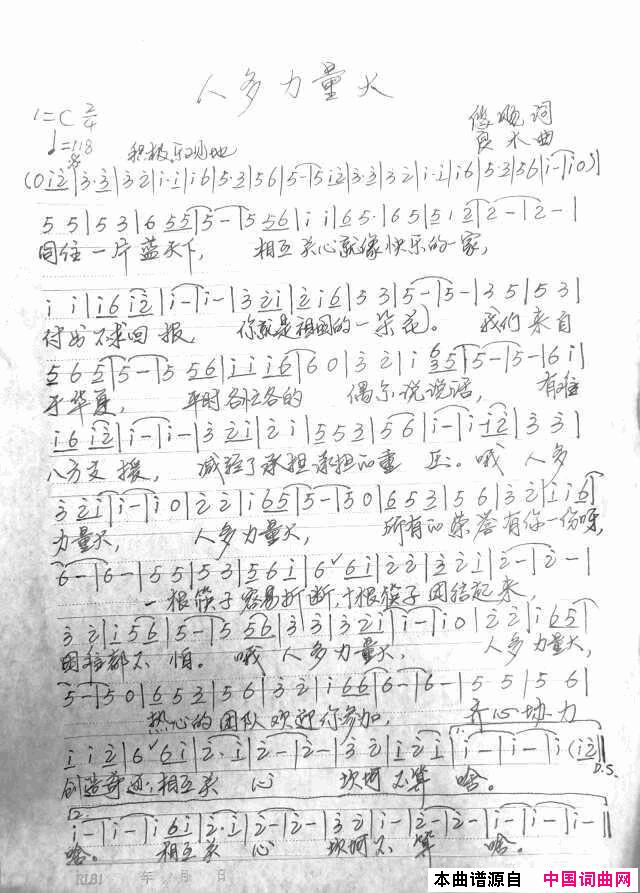 人多力量大
1=C 2/4
悠飏词
♩=118
良木曲
积极乐观地
(0 i 2|3·3|3 2|i·i|i 6|5·3|5 6|5-|5 i 2|3·3|3 2|i·i|i 6|5·3|5 6|i-|i 0)|
5 5|5 3|6 5 5|5-|5 5 6|i i|6 5·|6 5|5 1 2|2-|2-|
同住一片蓝天下， 相互关心就像快乐的一家，
i i|i 6 i 2|i-|i-|3 2 i|2 i 6|5 3|5-|5-|3 5|5 3|
付出不求回报 你就是祖国的一朵花。 我们来自
5 6 5|5-|5 5 6|i i i 6|6 0|3 2|i 5|5-|5-|6 i|
于华夏， 平时各忙各的 偶尔说说话， 有难
i 6 i 2|i-|i-|3 2 i|2 i|5 5 3|5 6|i-|i- i 2|3 3|
八方支援， 减轻了承担承担的重压。哦 人多
3 2 i|i-|i 0|2 2|i 6 5|5-|5 0|6 5 3|5 6|3 2|i i 6|
力量大， 人多力量大， 所有的荣誉有你一份呀，
6-|6-|5 5|5 3|5 6 i|6 ˅ 6 i|2 2|3 2 i|2-|2-|
一根筷子容易折断，十根筷子团结起来，
3 2|i 5 6|5-|5 5 6|3 3|3 2 i|i-|i 0|2 2|i 6 5|
困难都不怕。 哦 人多力量大， 人多力量大，
5-|5 0|6 5 3|5 6|3 2|i 6 6|6-|6-|5 5|5 6|
热心的团队欢迎你参加， 齐心协力
i i 2|6 ˅ 6 i|2·i|2-|2-|3 2|i 2 i|i-|i-|i (i 2||
创造奇迹，相互关 心 坎坷不算 啥。 D.S.
2.
i-|i-|i 6 i|2·i|2-|2-|3 2|i-|2-|2-|i-|i-||
啥。 相互关 心 坎坷不 算 啥。
年 月 日
本曲谱源自 中国词曲网